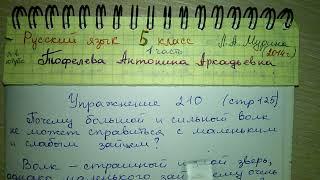 Русский язык 5 класс
1 часть
Тюфелева Антонина Аркадьевна
Упражнение 210 (стр 125)
Почему большой и сильный волк
не может справиться с маленьким
и слабым зайцем?
Волк – страшный и зверь,
однако маленького очень